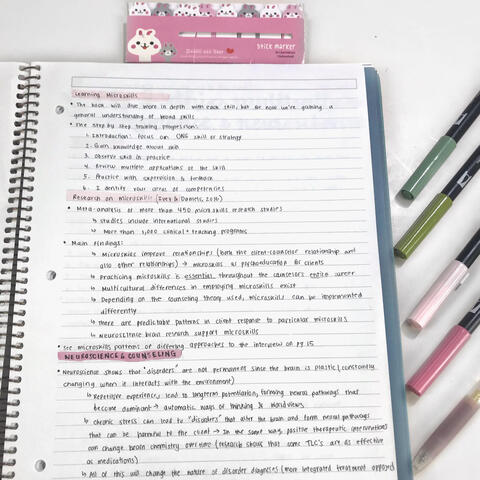 stick marker
Learning Microskills
• The book will dive more in depth with each skill, but for now we're gaining a
general understanding of broad skills
• The step by step training progression:
1. Introduction: focus on ONE skill or strategy
2. Gain knowledge about skill
3. Observe skill in practice
4. Review multiple applications of the skill
5. Practice with supervision & feedback
6. identify your areas of competencies
Research on Microskills (Ivey & Daniels, 2016)
• Meta-analysis of more than 450 microskills research studies
↳ studies include international studies
↳ More than 1,000 clinical + teaching programs
• Main findings:
↳ Microskills improve relationships (both the client-counselor relationship and
also other relationships) → microskills as psychoeducation for clients
↳ Practicing microskills is essential throughout the counselor's entire career
↳ Multicultural differences in employing microskills exist
↳ Depending on the counseling theory used, microskills can be implemented
differently
↳ there are predictable patterns in client response to particular microskills
↳ neuroscience/brain research support microskills
• See microskills patterns of differing approaches to the interview on pg. 15
NEUROSCIENCE & COUNSELING
• Neuroscience shows that "disorders" are not permanent since the brain is plastic (constantly
changing when it interacts with the environment)
↳ Repetitive experiences lead to longterm potentiation, forming neural pathways that
become dominant → automatic ways of thinking & worldviews
↳ chronic stress can lead to "disorders" that alter the brain and form neural pathways
that can be harmful to the client → In the same way, positive therapeutic interventions
can change brain chemistry overtime (research shows that some TLC's are as effective
as medications)
↳ All of this will change the nature of disorder diagnoses (more integrated treatment